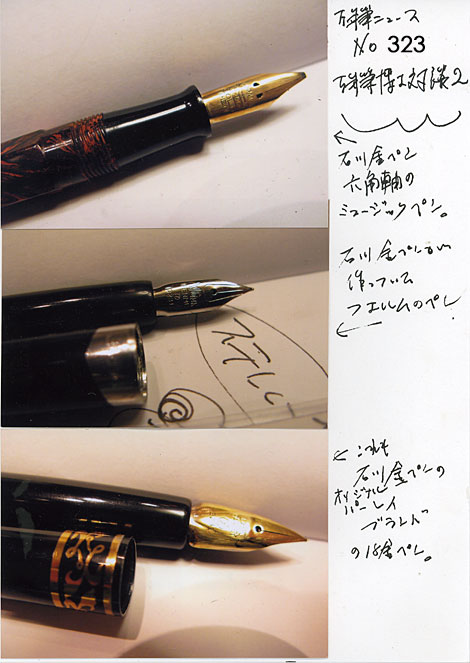 万年筆ニュース
No 323
万年筆博士対談2
石川金ペン
六角軸の
ミュージックペン。
石川金ペンさんが
作っていた
フエルムのペン
ステン
これも
石川金ペンの
オリジナル
パーレイ
ブランド
の18金ペン。